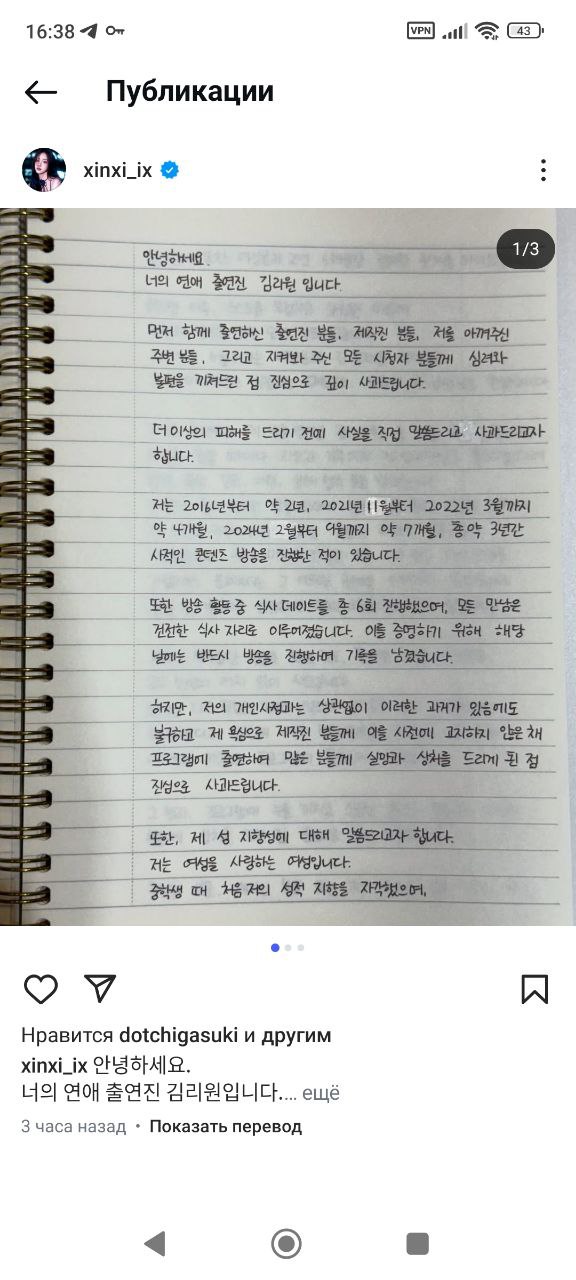 16:38
VPN
43
Публикации
xinxi_ix
1/3
안녕하세요.
너의 연애 출연진 김리원 입니다.
먼저 함께 출연하신 출연진 분들, 제작진 분들, 저를 아껴주신
주변 분들, 그리고 지켜봐 주신 모든 시청자 분들께 심려와
불편을 끼쳐드린 점 진심으로 깊이 사과드립니다.
더 이상의 피해를 드리기 전에 사실을 직접 말씀드리고 사과드리고자
합니다.
저는 2016년부터 약 2년, 2021년 11월부터 2022년 3월까지
약 4개월, 2024년 2월부터 9월까지 약 7개월, 총 약 3년간
사적인 콘텐츠 방송을 진행한 적이 있습니다.
또한 방송 활동 중 식사 데이트를 총 6회 진행했으며, 모든 만남은
건전한 식사 자리로 이루어졌습니다. 이를 증명하기 위해 해당
날에는 반드시 방송을 진행하며 기록을 남겼습니다.
하지만, 저의 개인사정과는 상관없이 이러한 과거가 있음에도
불구하고 제 욕심으로 제작진 분들께 이를 사전에 고지하지 않은 채
프로그램에 출연하여 많은 분들께 실망과 상처를 드리게 된 점
진심으로 사과드립니다.
또한, 제 성 지향성에 대해 말씀드리고자 합니다.
저는 여성을 사랑하는 여성입니다.
중학생 때 처음 저의 성적 지향을 자각했으며,
Нравится dotchigasuki и другим
xinxi_ix 안녕하세요.
너의 연애 출연진 김리원입니다.... ещё
3 часа назад • Показать перевод